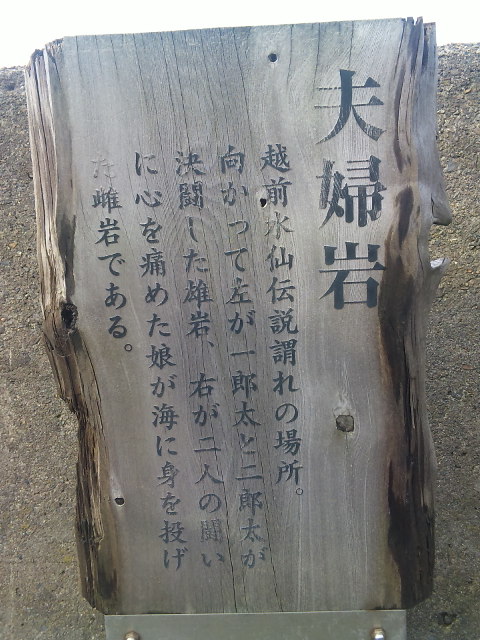 夫婦岩
越前水仙伝説謂れの場所。
向かって左が一郎太と二郎太が
決闘した雄岩、右が二人の闘い
に心を痛めた娘が海に身を投げ
た雌岩である。